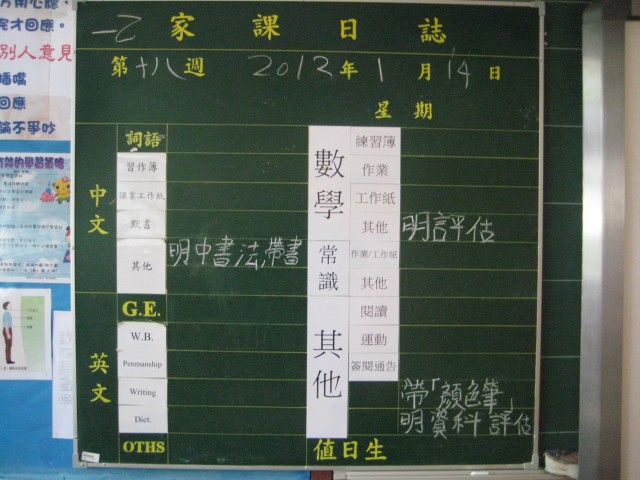 一乙 家課日誌
第十八週 2012年1月14日
星期
中文
詞語
習作簿
課業工作紙
默書
其他 明中書法,帶書
英文
G.E.
W.B.
Penmanship
Writing
Dict.
OTHS
數學
練習簿
作業
工作紙
其他 明評估
常識
作業/工作紙
其他
其他
閱讀
運動
簽閱通告
帶「顏色筆」
明資料評估
值日生
完才回應。
別人意見
插嘴
回應
論不爭吵
有效的學習策略